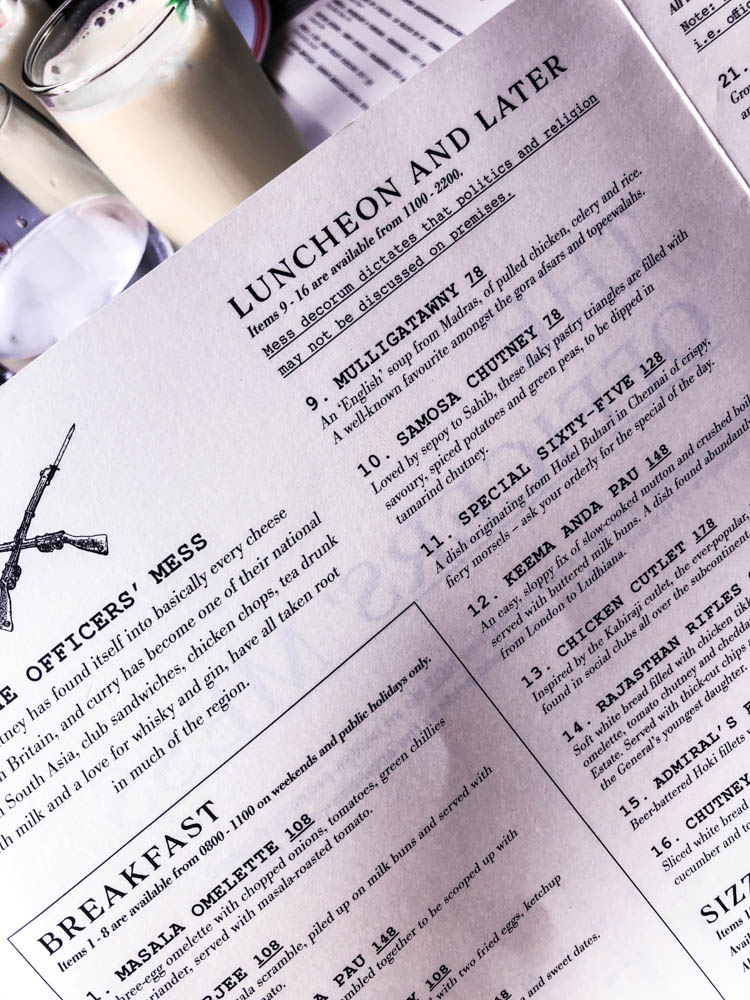 LUNCHEON AND LATER
Items 9 - 16 are available from 1100 - 2200.
Mess decorum dictates that politics and religion
may not be discussed on premises.
9. MULLIGATAWNY 78
An 'English' soup from Madras, of pulled chicken, celery and rice.
A well-known favourite amongst the gora afsars and topeewalahs.
10. SAMOSA CHUTNEY 78
Loved by sepoy to Sahib, these flaky pastry triangles are filled with
savoury, spiced potatoes and green peas, to be dipped in
tamarind chutney.
11. SPECIAL SIXTY-FIVE 128
A dish originating from Hotel Buhari in Chennai of crispy,
fiery morsels – ask your orderly for the special of the day.
12. KEEMA ANDA PAU 148
An easy, sloppy fix of slow-cooked mutton and crushed
served with buttered milk buns. A dish found
from London to Ludhiana.
13. CHICKEN CUTLET 178
Inspired by the Kabiraji cutlet, the
found in social clubs all over the
14. RAJASTHAN RIFLES
Soft white bread filled with chicken
omelette, tomato chutney and
Estate. Served with thick-cut chips
the General's youngest daughter
15. ADMIRAL'S
Beer-battered Hoki fillets
16. CHUTNEY
Sliced white bread
cucumber and
OFFICERS' MESS
has found itself into basically every cheese
Britain, and curry has become one of their national
South Asia, club sandwiches, chicken chops, tea drunk
milk and a love for whisky and gin, have all taken root
in much of the region.
BREAKFAST
Items 1 - 8 are available from 0800 - 1100 on weekends and public holidays only.
1. MASALA OMELETTE 108
omelette with chopped onions, tomatoes, green chillies
served with masala-roasted tomato.
108
scramble, piled up on milk buns and served with
PAU 148
together to be scooped up with
108
with two fried eggs, ketchup
and sweet dates.
Note:
i.e.
21.
Items